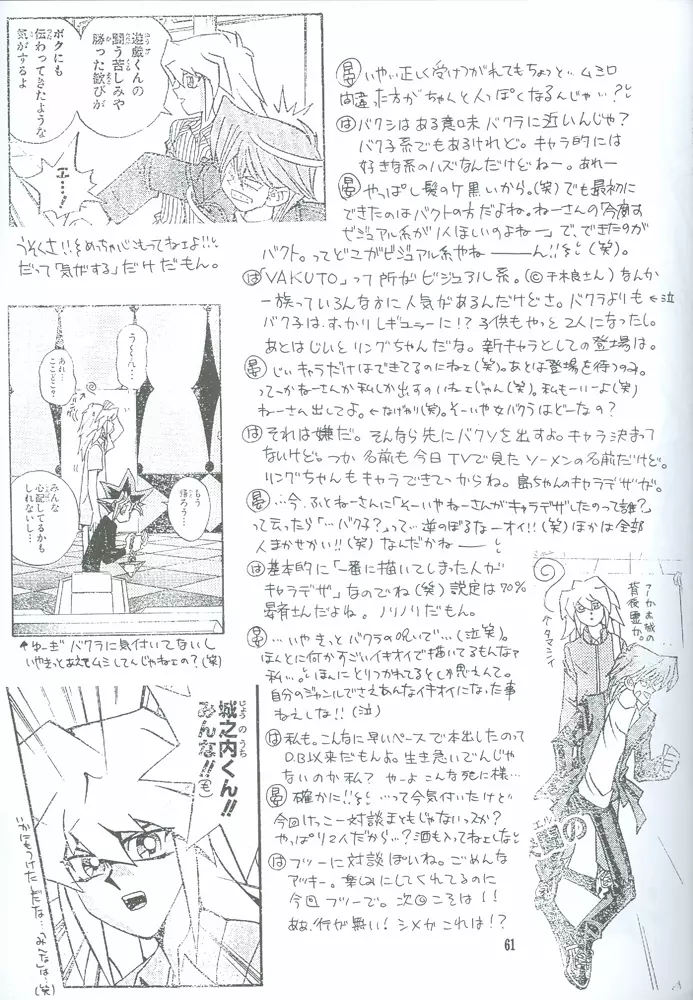 遊戯くんの
闘う苦しみや
勝った歓びが
ボクにも
伝わってきたような
気がするよ
うそくさ!!をめっちゃ心もってねェよ!!
だって「気がする」だけだもん。
う〜ん…
あれ…
ここどこ?
もう
帰ろう…
みんな
心配してるかも
しれないし…
↑ゆーぎ バクラに気付いてないし
いやきっとあえてムシしてんじゃねェの?(笑)
城之内くん!!
みんな!!
も
「みんな」は…(笑)
晏 いやい正しく受けつがれてもちょっと… ムシロ
間違った方がちゃんと人っぽくなるんじゃ…?
は バクシはある意味バクラに近いんじゃ?
バク子系でもあるけれど。キャラ的には
好きな系のハズなんだけどねー。あれー
晏 やっぱし髪の毛黒いから。(笑)でも最初に
できたのはバクトの方だよね。ねーさんの「今度す
ビジュアル系が1人ほしいのよねー」で、できたのが
バクト。ってどこがビジュアル系やねーーーん!!(笑)。
は「VAKUTO」って所がビジュアル系。(©千木良さん)なんか
一族っているんなかに人気があるんだけどさ。バクラよりも ←泣
バク子は、すっかりレギュラーに!?子供もやっと2人になったし。
あとはじいとリングちゃんだな。新キャラとしての登場は。
晏 じぃキャラだけはできてるのにねェ(笑)。あとは登場を待つのみ。
ってーかねーさんか私しか出すのいねェじゃん(笑)。私もーいーよ(笑)
ねーさん出してよ。←なげやり(笑)。そーいや女バクラはどーなの?
は それは嫌だ。そんなら先にバクソを出すよ。キャラ決まって
ないけど。つか名前も今日TVで見たソーメンの名前だけど。
リングちゃんもキャラできてっからね。島ちゃんのキャラデザが。
晏 …今、ふとねーさんに「そーいやねーさんがキャラデザしたのって誰?」
って云ったら「…バク子?」って…逆のぼるなーオイ!!(笑)ほかは全部
人まかせかい!!(笑)なんだかねーーー
は 基本的に「一番に描いてしまった人が
キャラデザ」なのでね(笑)設定は70%
晏斉さんだよね。ノリノリだもん。
晏 …いやきっとバクラの呪いで…(泣笑)。
ほんとに何かすごいイキオイで描いてるもんなァ
私…。ほんにとりつかれてるとしか思えんて。
自分のジャンルでさえあんなイキオイになった事
ねえしな!!(泣)
は 私も。こんなに早いペースで本出したのって
D.B以来だもんよ。生き急いでんじゃ
ないのか私?やーよこんな死に様…
晏 確かに!!…って今気付いたけど
今回けっこー対談まともじゃないっスか?
やっぱり2人だから…?酒も入ってねェしな
は フツーに対談ぽいね。ごめんな
アッキー。楽しみにしてくれてるのに
今回フツーで。次回こそは!!
ああ、行が無い!シメかこれは!?
背後霊か。
61